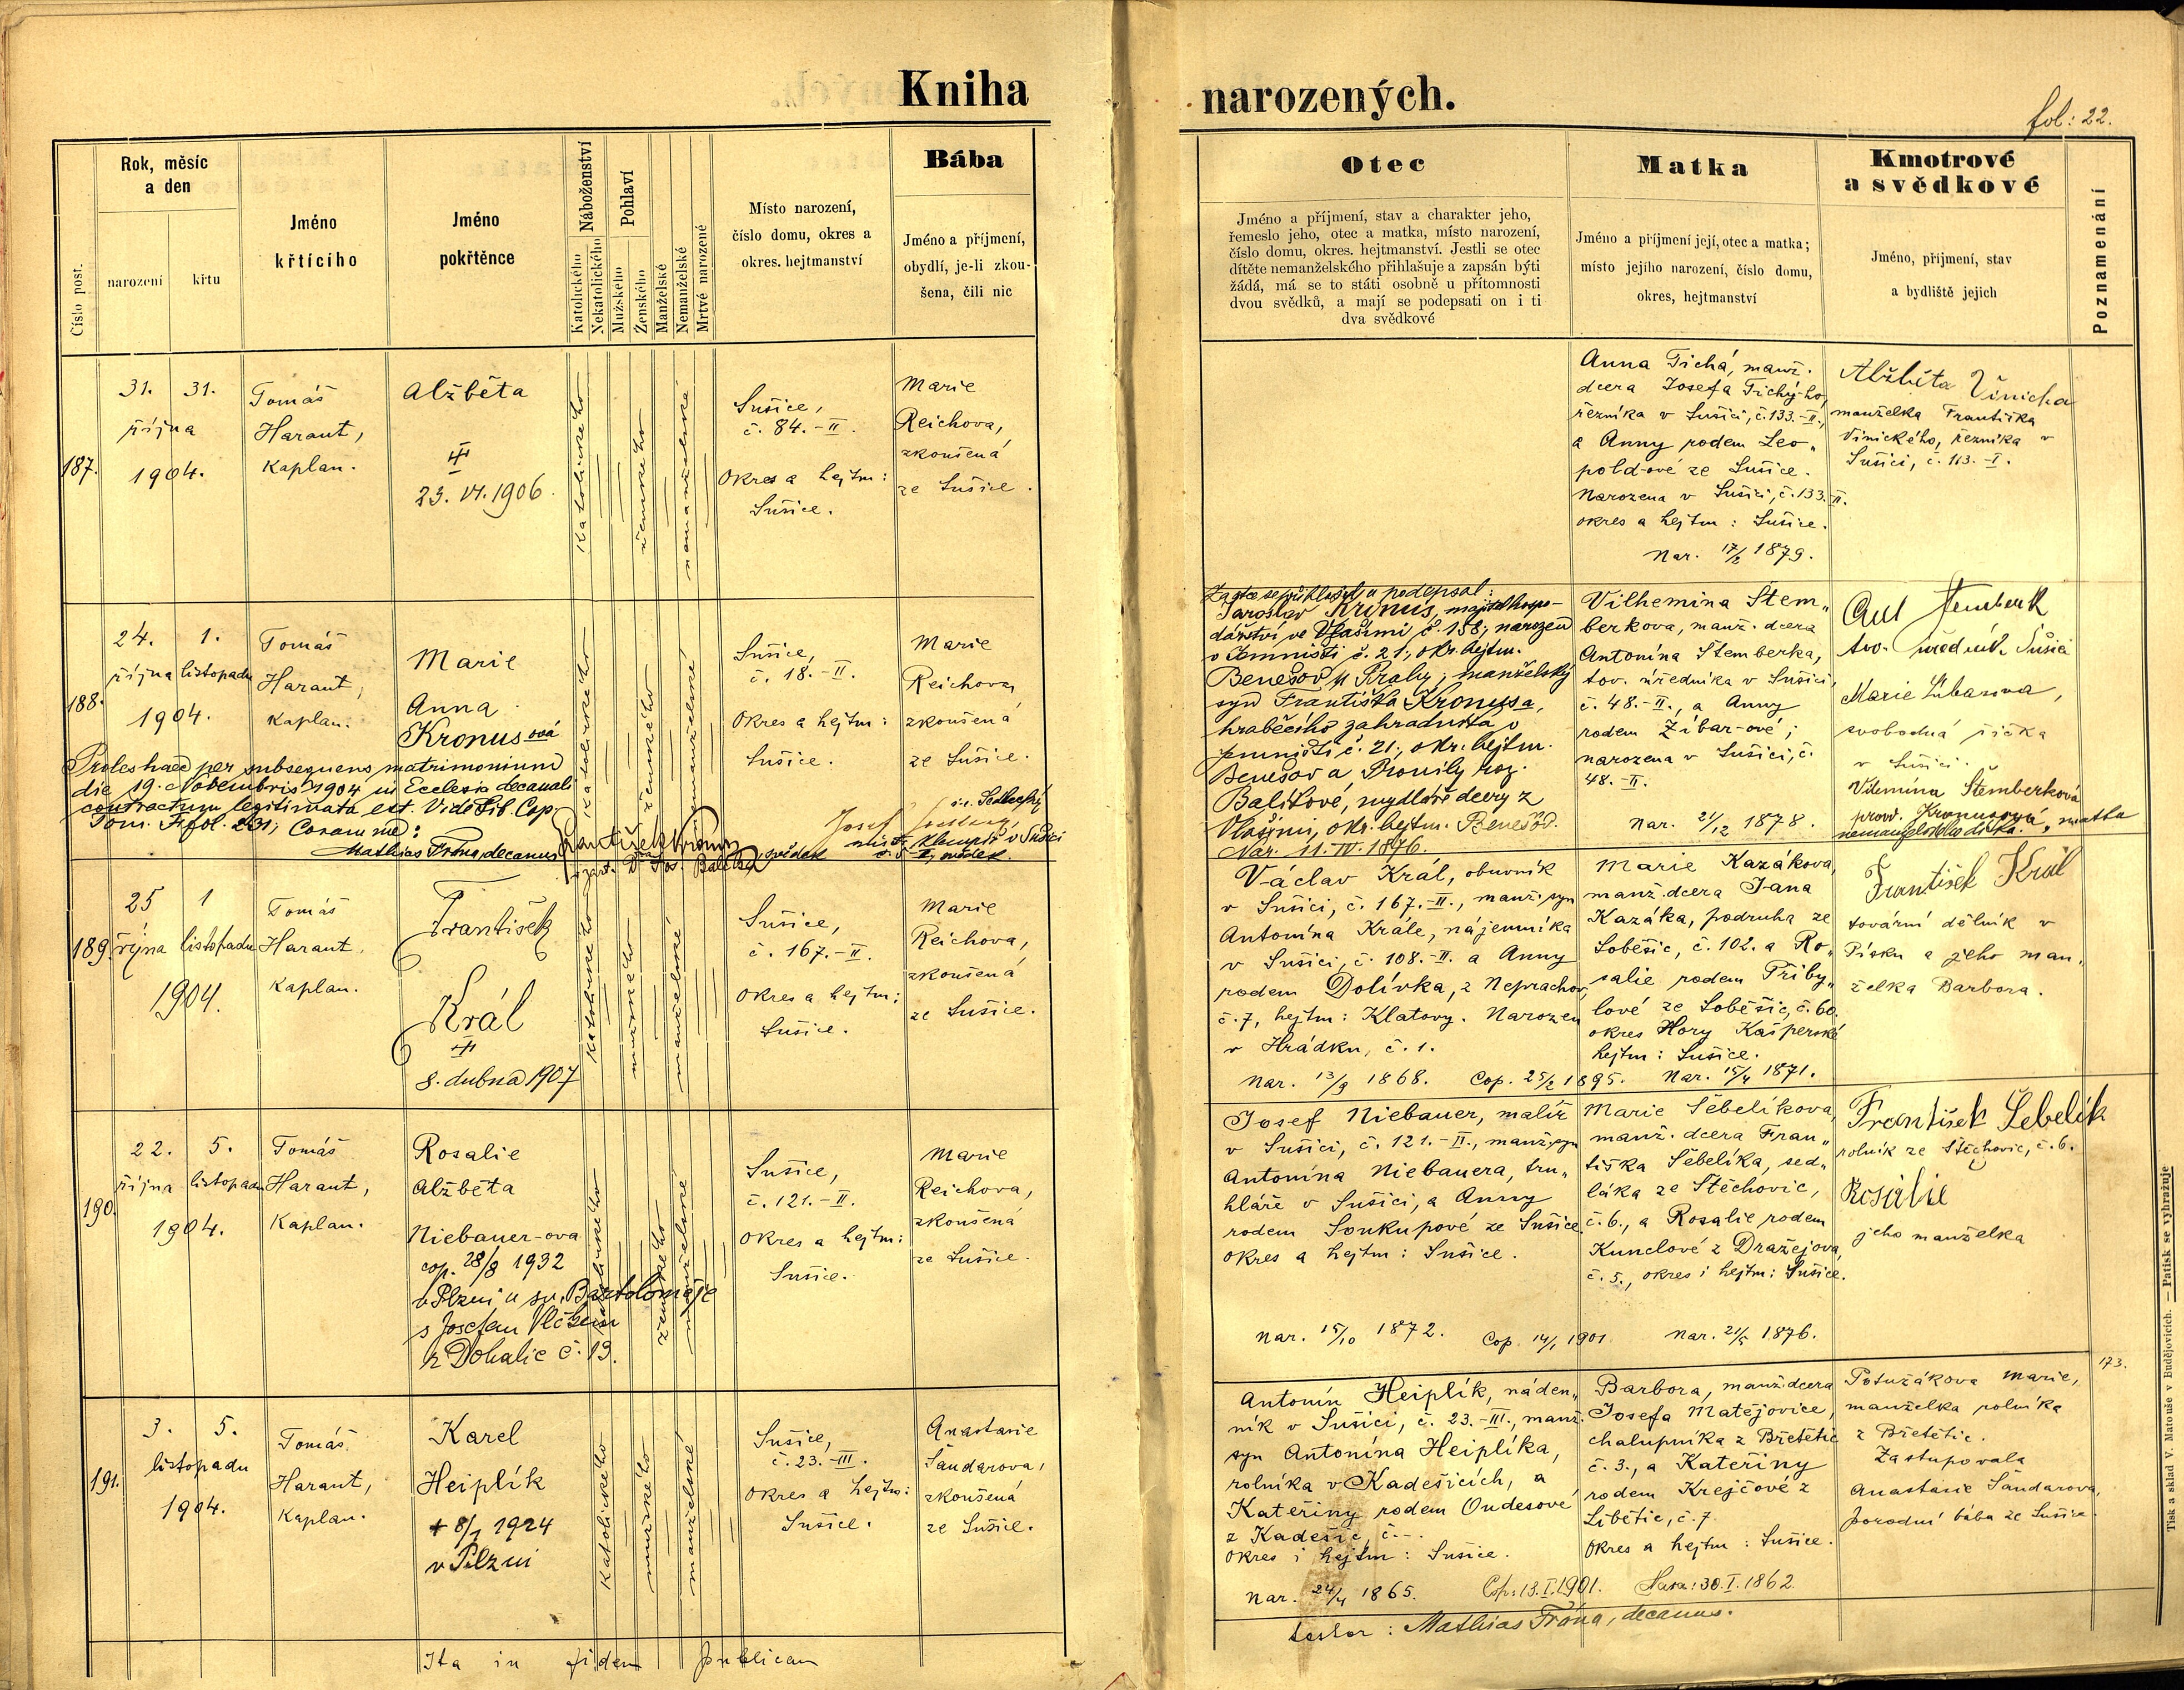 Kniha narozených.
fol: 22.
Číslo post.
Rok, měsíc
a den
narození
křtu
Jméno
křtícího
Jméno
pokřtěnce
Náboženství
Katolického
Nekatolického
Pohlaví
Mužského
Ženského
Manželské
Nemanželské
Mrtvé narozené
Místo narození,
číslo domu, okres a
okres. hejtmanství
Bába
Jméno a příjmení,
obydlí, je-li zkou-
šena, čili nic
Otec
Jméno a příjmení, stav a charakter jeho,
řemeslo jeho, otec a matka, místo narození,
číslo domu, okres. hejtmanství. Jestli se otec
dítěte nemanželského přihlašuje a zapsán býti
žádá, má se to státi osobně u přítomnosti
dvou svědků, a mají se podepsati on i ti
dva svědkové
Matka
Jméno a příjmení její, otec a matka;
místo jejího narození, číslo domu,
okres, hejtmanství
Kmotrové
a svědkové
Jméno, příjmení, stav
a bydliště jejich
Poznamenání
187.
31. 31.
října
1904.
Tomáš
Haraut,
Kaplan.
Alžběta
23. VI. 1906.
katolického
ženského
nemanželské
Sušice,
č. 84.-II.
Okres a hejtm:
Sušice.
Marie
Reichova,
zkoušená
ze Sušice.
Anna Tichá, manž.
dcera Josefa Tichý-ho,
řezníka v Sušici, č. 133.-II.,
a Anny rodem Leo„
pold-ové ze Sušice.
Narozena v Sušici, č. 133.-II.
okres a hejtm: Sušice.
Nar. 17/2 1879.
Alžběta Vinická
manželka Františka
Vinického, řezníka v
Sušici, č. 113.-I.
188.
24. 1.
října listopadu
1904.
Tomáš
Haraut,
Kaplan.
Marie
Anna
Kronusová
katolického
ženského
Sušice,
č. 18.-II.
Okres a hejtm:
Sušice.
Marie
Reichova,
zkoušená
ze Sušice.
Proles haec per subsequens matrimonium
die 19. Novembris 1904 in Ecclesia decanali
contractum legitimata est. Vide Lib. Cop.
Tom. F. fol. 231; Coram me:
Mathias Frána, decanus
František Kronus
svědek
Josef Sedlecký
v Sušici
č. 5 I, svědek.
Za otce se přihlásil a podepsal:
Jaroslav Kronus, majitel hospo-
dářství ve Vlašimi č. 158; narozen
v Jemništi č. 21., okr. hejtm.
Benešov u Prahy, manželský
syn Františka Kronusa,
hraběcího zahradníka v
Jemništi č. 21., okr. hejtm.
Benešov a Bronily roz.
Balíkové, mydláře dcery z
Vlašimi, okr. hejtm. Benešov.
Nar. 11. IV. 1876.
Vilhemina Štem„
berkova, manž. dcera
Antonína Štemberka,
tov. úředníka v Sušici,
č. 48.-II., a Anny
rodem Zíbar-ové;
narozena v Sušici, č.
48.-II.
Nar. 21/12 1878.
Ant Štemberk
tov. úředník Sušici
Marie
svobodná
v Sušici.
Vilemína Štemberková
prov. Kronusová, matka
nemanželského dítka.
189.
25 1
října listopadu
1904.
Tomáš
Haraut.
Kaplan.
František
Král
8. dubna 1907
katolického
mužského
manželské
Sušice,
č. 167.-II.
Okres a hejtm:
Sušice.
Marie
Reichova,
zkoušená
ze Sušice.
Václav Král, obuvník
v Sušici, č. 167.-II., manž. syn
Antonína Krále, nájemníka
v Sušici, č. 108.-II. a Anny
rodem Dolívka, z Neprachov,
č. 7, hejtm: Klatovy. Narozen
v Hrádku, č. 1.
Nar. 13/9 1868. Cop. 25/2 1895.
Marie Kazákova,
manž. dcera Jana
Kazáka, podruha ze
Soběšic, č. 102. a Ro„
salie rodem Přiby„
lové ze Soběšic, č. 60.
okres Hory Kašperské
hejtm: Sušice.
Nar. 15/4 1871.
František Král
tovární dělník v
Písku a jeho man„
želka Barbora.
190.
22. 5.
října listopadu
1904.
Tomáš
Haraut,
Kaplan.
Rosalie
Alžběta
Niebauer-ova
cop. 28/8 1932
v Plzni u sv. Bartoloměje
s Josefem Vlčkem
z Dohalic č. 13.
katolického
ženského
manželské
Sušice,
č. 121.-II.
Okres a hejtm:
Sušice.
Marie
Reichova,
zkoušená
ze Sušice.
Josef Niebauer, malíř
v Sušici, č. 121.-II., manž. syn
Antonína Niebauera, tru„
hláře v Sušici, a Anny
rodem Soukupové ze Sušice
okres a hejtm: Sušice.
Nar. 15/10 1872. Cop. 14/1 1901
Marie Šebelíkova,
manž. dcera Fran„
tiška Šebelíka, sed„
láka ze Stěchovic,
č. 6., a Rosalie rodem
Kunclové z Dražejova,
č. 5., okres i hejtm: Sušice.
Nar. 21/5 1876.
František Šebelík
rolník ze Stěchovic, č. 6.
Rosalie
jeho manželka
191.
3. 5.
listopadu
1904.
Tomáš
Haraut,
Kaplan.
Karel
Heiplík
+ 8/1 1924
v Plzni
katolického
mužského
manželské
Sušice,
č. 23.-III.
Okres a hejtm:
Sušice.
Anastasie
Šandarova,
zkoušená
ze Sušice.
Antonín Heiplík, náden„
ník v Sušici, č. 23.-III., manž.
syn Antonína Heiplíka,
rolníka v Kadešicích, a
Kateřiny rodem Oudesové
z Kadešic, č.-.
okres i hejtm: Sušice.
Nar. 24/4 1865. Cop: 13. I. 1901.
Barbora, manž. dcera
Josefa Matějovice,
chalupníka z Břetětic
č. 3., a Kateřiny
rodem Krejčové z
Libětic, č. 7
Okres a hejtm: Sušice.
Nar: 30. I. 1862
Potužákova Marie,
manželka rolníka
z Břetětic.
Zastupovala
Anastasie Šandarova,
porodní bába ze Sušice.
173.
Ita in fidem publicam
testor: Mathias Frána, decanus.
Tisk a sklad V. Matouše v Budějovicích. — Patisk se vyhražuje